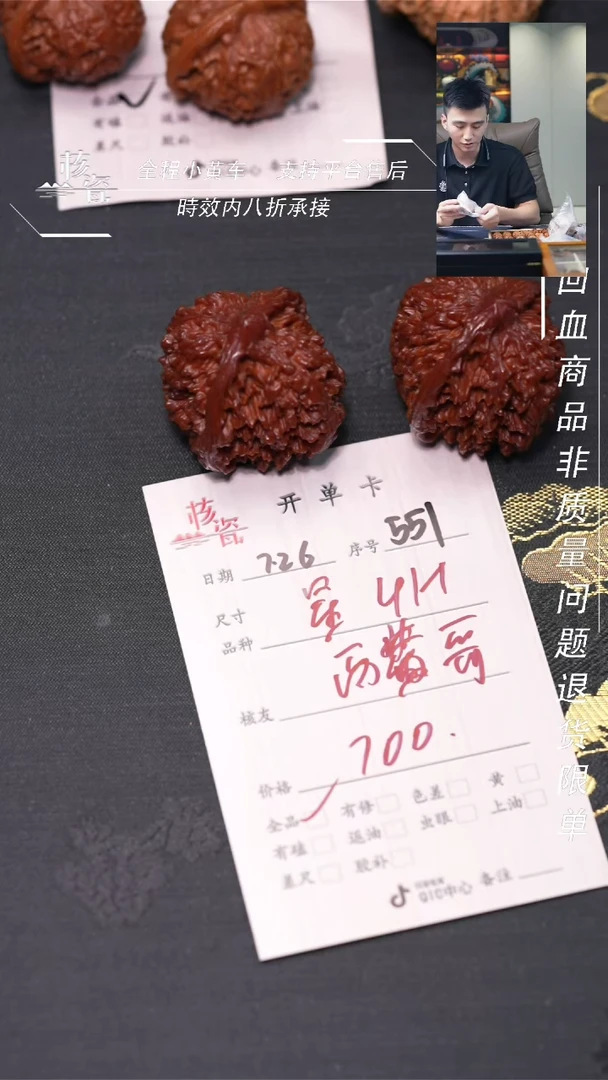 全品
有磕 返油
差尺 胶补
核瓷
全程小黄车 支持平台售后
時效内八折承接
回血商品非质量问题退货限单
核瓷
开单卡
日期 7.26 序号 551
尺寸
品种
核友
价格 700.
全品 有修 色差 黄
有磕 返油 虫眼 上油
差尺 胶补
QIC中心 备注